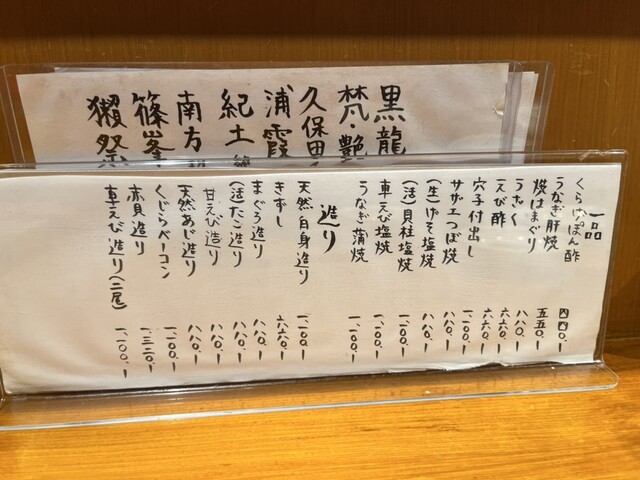 黒龍
梵・艶
久保田
浦霞
紀土
南方
篠峯
獺祭
一品
くらげぽん酢 四四〇.ー
うなぎ肝焼 五五〇.ー
焼はまぐり 八八〇.ー
うざく 六六〇.ー
えび酢 六六〇.ー
穴子付出し 一、一〇〇.ー
サザエつぼ焼 一、一〇〇.ー
(生)げそ塩焼 八八〇.ー
(活)貝柱塩焼 一、一〇〇.ー
車えび塩焼 一、一〇〇.ー
うなぎ蒲焼 一、一〇〇.ー
造り
天然白身造り 一、一〇〇.ー
きずし 六六〇.ー
まぐろ造り 八八〇.ー
(活)たこ造り 八八〇.ー
甘えび造り 八八〇.ー
天然あじ造り 八八〇.ー
くじらベーコン 一、一〇〇.ー
赤貝造り 一、三二〇.ー
車えび造り(二尾) 一、一〇〇.ー